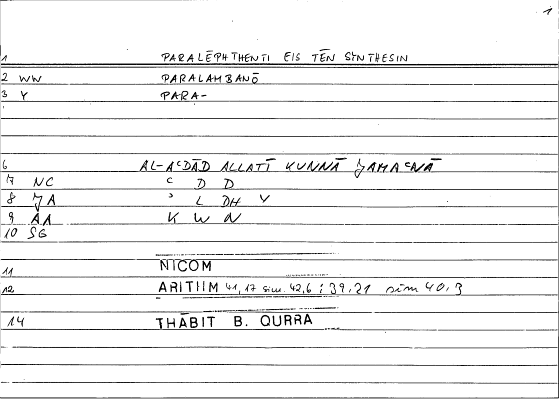 1
1 PARALĒPHTHENTI EIS TĒN SYNTHESIN
2 WW PARALAMBANŌ
3 Y PARA-
6 AL-AʿDĀD ALLATĪ KUNNĀ JAMAʿNĀ
7 NC ʿ D D
8 JA ʾ L DH Y
9 AA K W N
10 SG
11 NICOM
12 ARITHM 41,17 sim. 42,6; 39,21 sim 40,3
14 THĀBIT B. QURRA